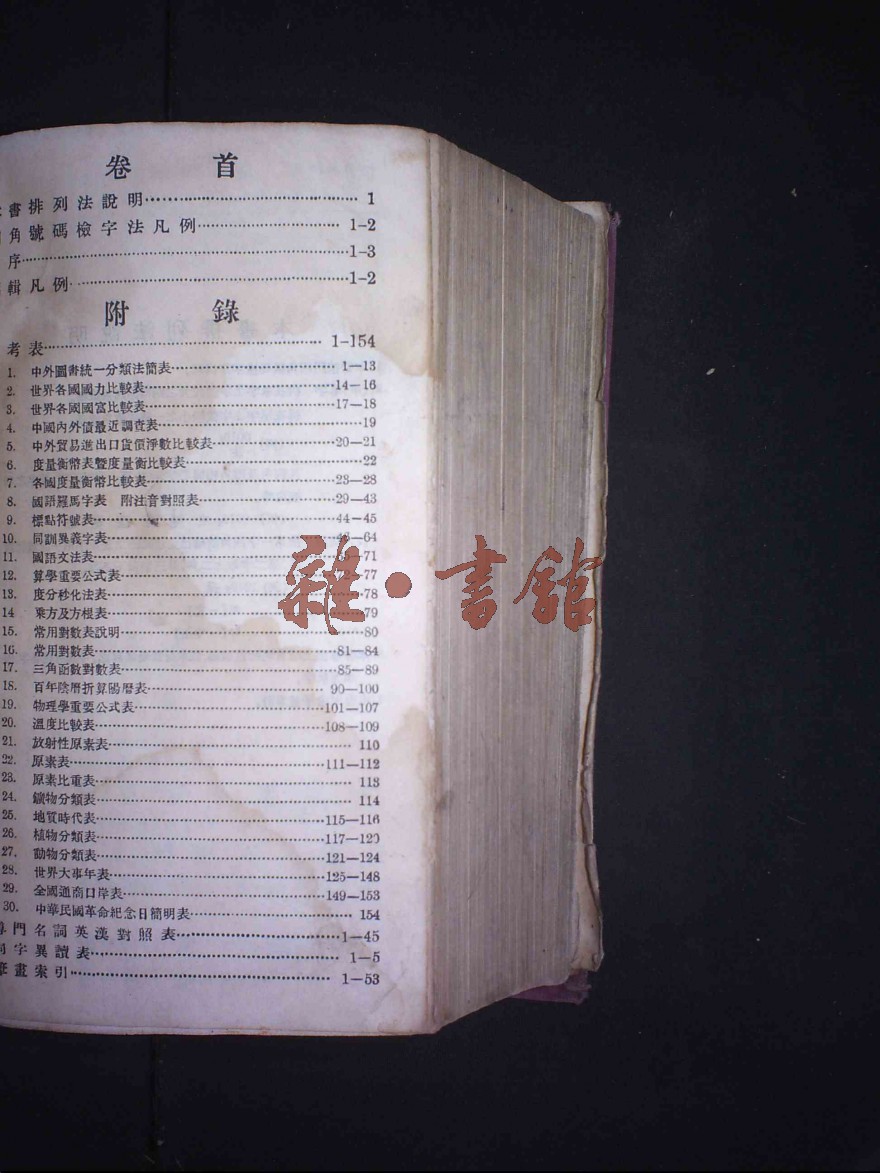 卷 首
書排列法說明 1
角號碼檢字法凡例 1-2
序 1-3
輯凡例 1-2
附 錄
考表 1-154
1. 中外圖書統一分類法簡表 1—13
2. 世界各國國力比較表 14—16
3. 世界各國國富比較表 17—18
4. 中國內外債最近調查表 19
5. 中外貿易進出口貨價淨數比較表 20—21
6. 度量衡幣表暨度量衡比較表 22
7. 各國度量衡幣比較表 23—28
8. 國語羅馬字表 附注音對照表 29—43
9. 標點符號表 44—45
10. 同訓異義字表 46—64
11. 國語文法表 71
12. 算學重要公式表 77
13. 度分秒化法表 78
14 乘方及方根表 79
15. 常用對數表說明 80
16. 常用對數表 81—84
17. 三角函數對數表 85—89
18. 百年陰曆折算陽曆表 90—100
19. 物理學重要公式表 101—107
20. 溫度比較表 108—109
21. 放射性原素表 110
22. 原素表 111—112
23. 原素比重表 113
24. 鑛物分類表 114
25. 地質時代表 115—116
26. 植物分類表 117—120
27. 動物分類表 121—124
28. 世界大事年表 125—148
29. 全國通商口岸表 149—153
30. 中華民國革命紀念日簡明表 154
門名詞英漢對照表 1—45
字異讀表 1—5
畫索引 1—53
雜·書館